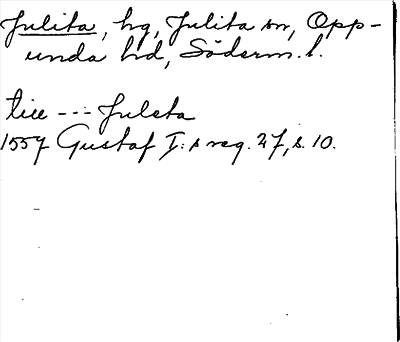 Julita, hg, Julita sn, Opp-
unda hd, Söderm. l.
tiil --- Juleta
1557 Gustaf I:s reg. 27, s. 10.